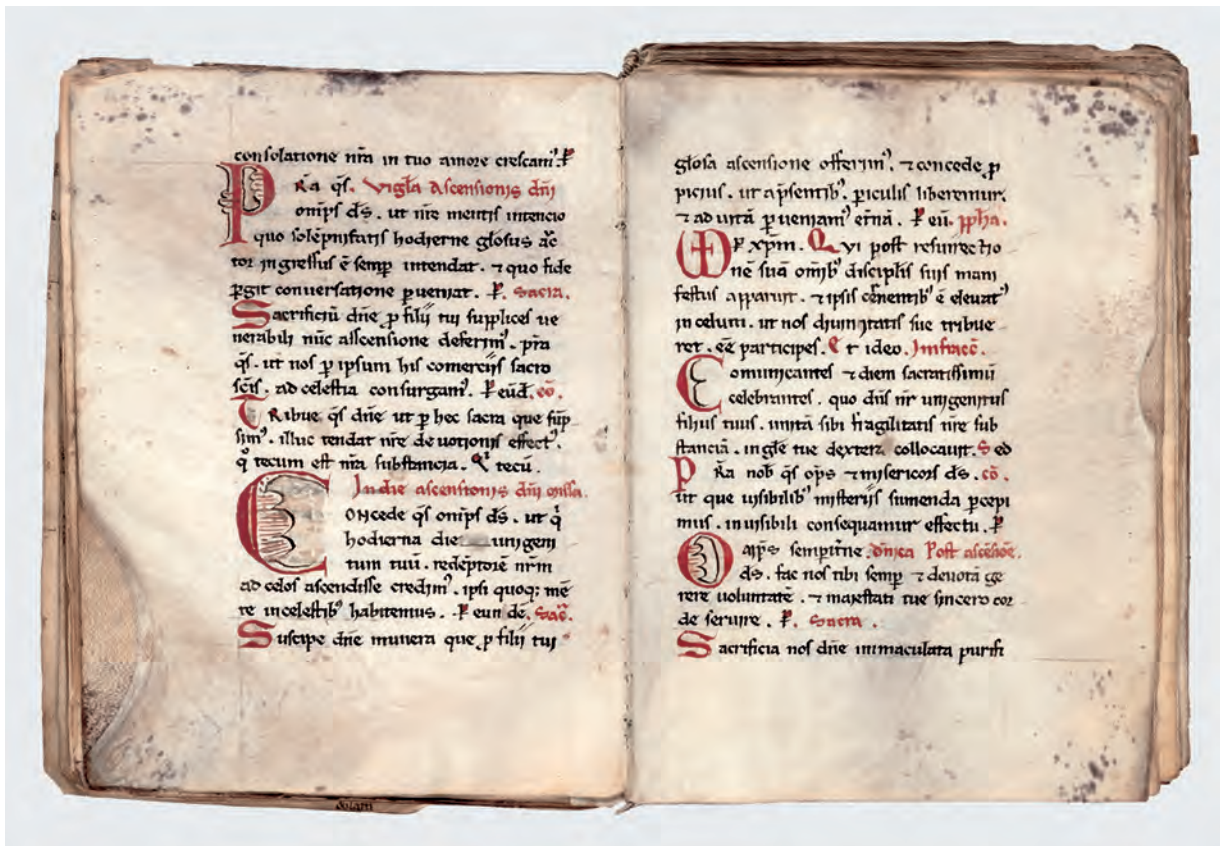 consolatione nr̃a in tuo amore crescam⁹. P̲
PRa q̄s. vigl̄a Ascensionis dn̄i
onip̄s d̄s. ut nr̄e mentis intencio
quo solēpnitatis hodierne gl̄osus ac̄
tor ingressus ē semꝑ intendat. ⁊ quo fide
ꝑgit conversatione ꝑveniat. P̲. sacra.
Sacrificiū dn̄e ꝓ filii tui supplices ve
nerabili nūc asscensione deferim⁹. pr̄a
q̄s. ut nos ꝑ ipsum his comerciis sacro
sc̄is. ad celestia consurgam⁹. P̲ eūd̄. cō.
TRibue q̄s dn̄e ut ꝑ hec sacra que sūp
sim⁹. illuc tendat nr̄e devotionis effect⁹.
q̊ tecum est nr̄a substancia. Qͥ tecū.
In die ascensionis dn̄i missa.
COncede q̄s onip̄s d̄s. ut qͥ
hodierna die unigeni
tum tuū. redēptorē nr̄m
ad celos ascendisse credim⁹. ipsi quoq; mē
te in celestib⁹ habitemus. P̲ eun de. sac̄.
Suscipe dn̄e munera que ꝓ filij tuj
gl̄osa ascensione offerim⁹. ⁊ concede ꝓ
picius. ut a p̄sentib⁹. ꝑiculis liberemur.
⁊ ad vitā ꝑveniam⁹ et̄nā. P̲ eū. p̄pha.
P̲ xp̄m. Qvi post resurrectio
nē suā omib⁹ discipl̄is suis mani
festus apparuit. ⁊ ipsis c̄nentib⁹ ē elevat⁹
in celum. ut nos divinitatis sue tribue
ret. eē participes. Et ideo. Infracc̄.
Comunicantes ⁊ diem sacratissimū
celebrantes. quo dn̄s nr̄ unigenitus
filius tuus. unitā sibi fragilitatis nr̄e sub
stanciā. in gl̄e tue dextera collocavit. Sed
PRa nob̄ q̄s op̄s ⁊ misericors d̄s. cō.
ut que visibilib⁹ misteriis sumenda ꝑcepi
mus. invisibili consequamur effectu. P̲
Omp̄s sempit̄ne dn̄ica Post ascēsionē.
d̄s. fac nos tibi semꝑ ⁊ devotā ge
rere voluntatē. ⁊ maiestati tue sincero cor
de servire. P̲. sacra.
Sacrificia nos dn̄e immaculata purifi